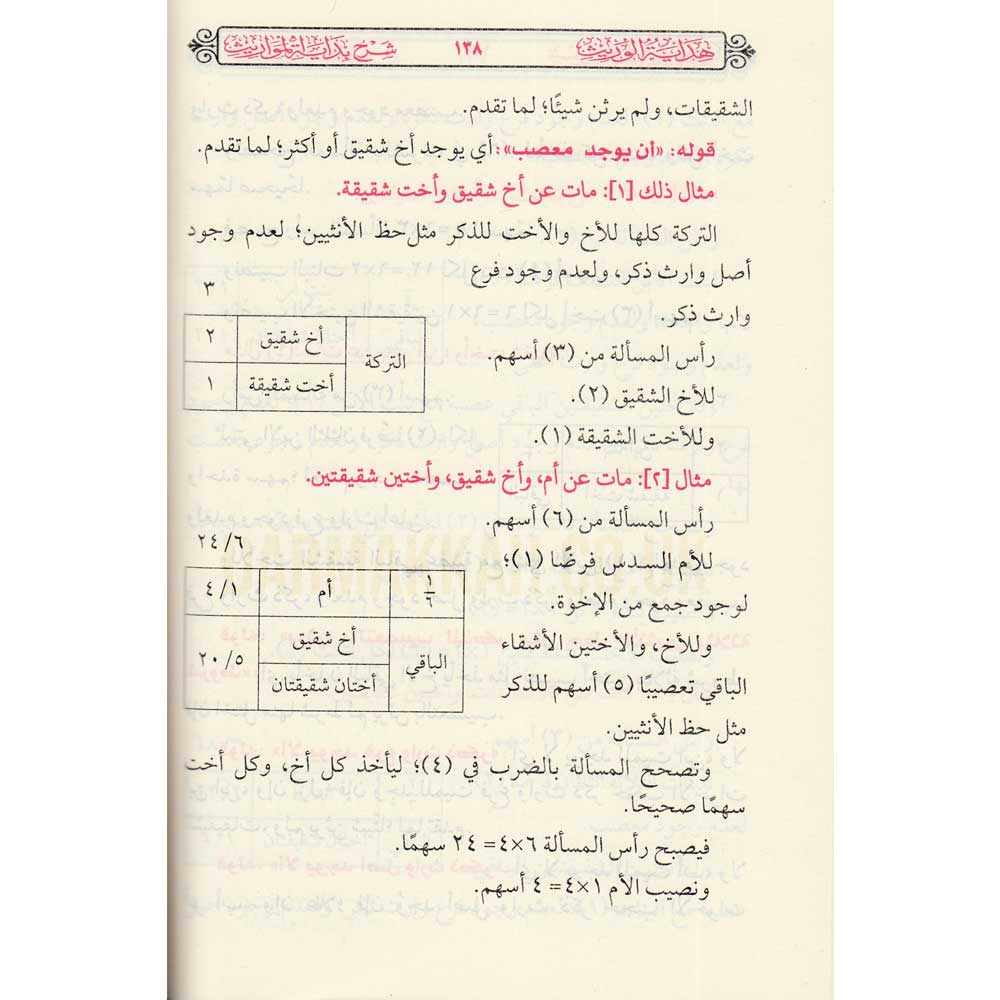 هداية الوريث
١٣٨
شرح بداية المواريث
الشقيقات، ولم يرثن شيئًا؛ لما تقدم.
قوله: «أن يوجد معصب»: أي يوجد أخ شقيق أو أكثر؛ لما تقدم.
مثال ذلك [١]: مات عن أخ شقيق وأخت شقيقة.
التركة كلها للأخ والأخت للذكر مثل حظ الأنثيين؛ لعدم وجود
أصل وارث ذكر، ولعدم وجود فرع
وارث ذكر.
رأس المسألة من (٣) أسهم.
للأخ الشقيق (٢).
وللأخت الشقيقة (١).
٣
التركة
أخ شقيق ٢
أخت شقيقة ١
مثال [٢]: مات عن أم، وأخ شقيق، وأختين شقيقتين.
رأس المسألة من (٦) أسهم.
للأم السدس فرضًا (١)؛
لوجود جمع من الإخوة.
وللأخ، والأختين الأشقاء
الباقي تعصيبًا (٥) أسهم للذكر
مثل حظ الأنثيين.
٢٤/٦
١/٦ أم ٤/١
الباقي
أخ شقيق
٢٠/٥
أختان شقيقتان
وتصحح المسألة بالضرب في (٤)؛ ليأخذ كل أخ، وكل أخت
سهمًا صحيحًا.
فيصبح رأس المسألة ٦×٤= ٢٤ سهمًا.
ونصيب الأم ١×٤= ٤ أسهم.